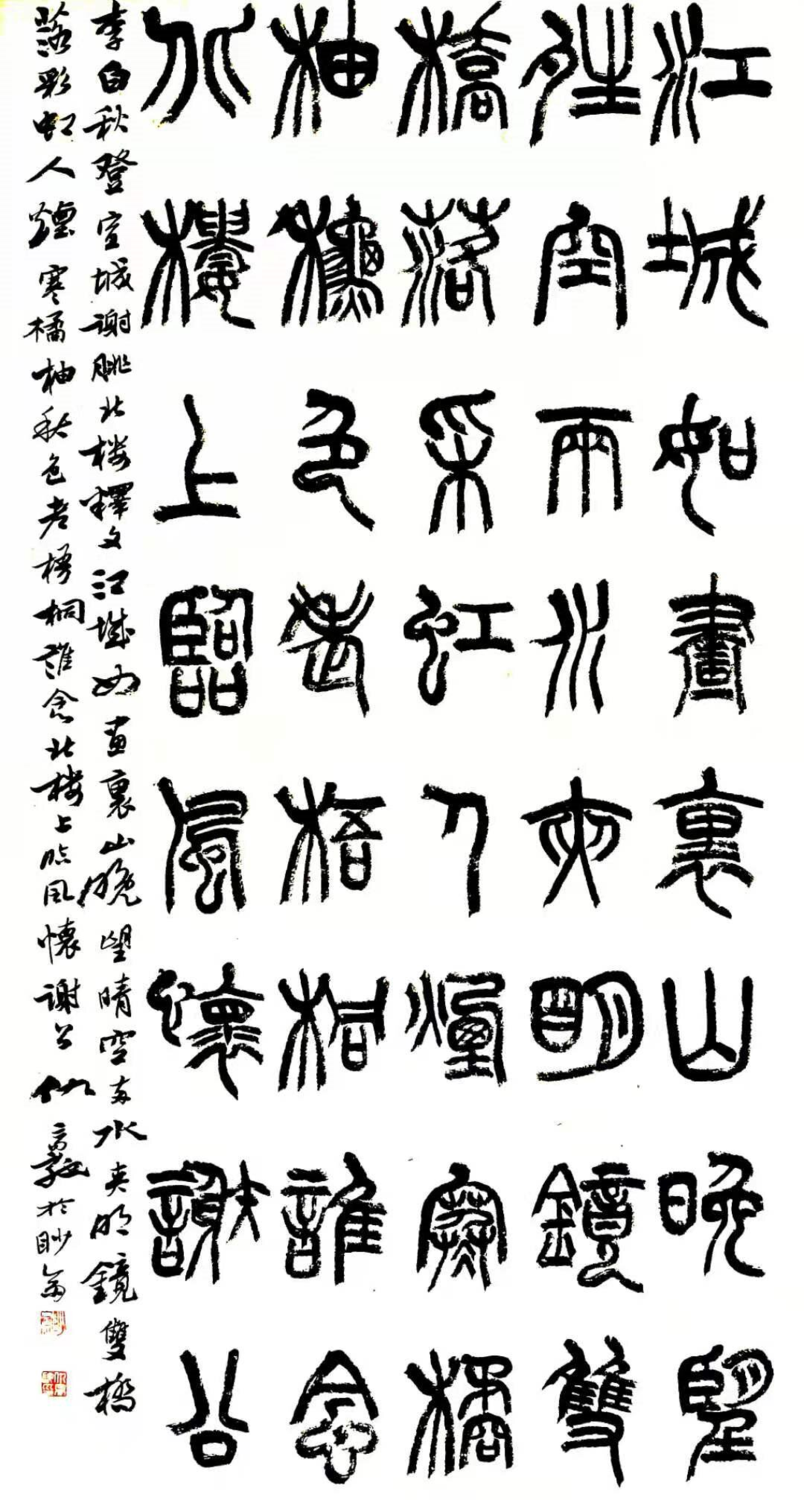 江城如畫裏山晚望
晴空兩水夾明鏡雙
橋落采虹人煙寒橘
柚秋色老梧桐誰念
北樓上臨風懷謝公
李白秋登宣城謝朓北楼釋文江城如畫裏山晚望晴空兩水夾明鏡雙橋
落彩虹人煙寒橘柚秋色老梧桐誰念北楼上临风懷謝公仇高於眇